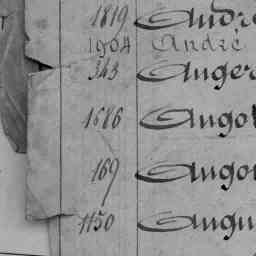 1819 André
1904 André
343 Anger
1686 Angol
169 Angou
1150 Angu